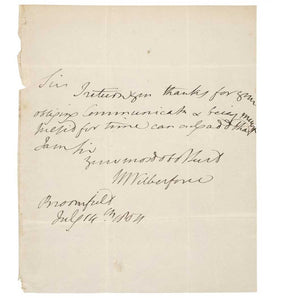 Sir I return you thanks for your
obliging Communicatn & being much
hurried for time can only add that
I am Sir
your most obedt Servt
W Wilberforce
Broomfield
July 14th